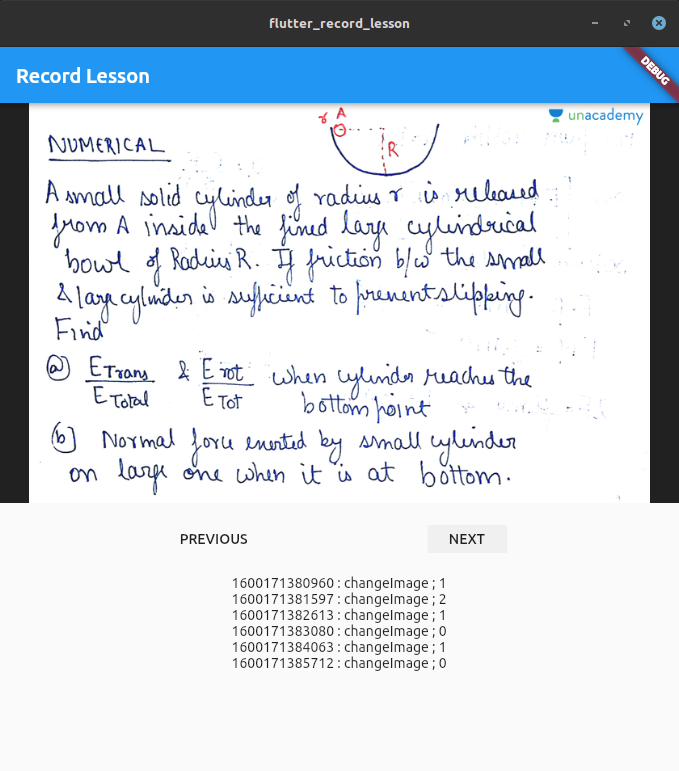 flutter_record_lesson
Record Lesson
DEBUG
r A
unacademy
NUMERICAL
R
A small solid cylinder of radius r is released
from A inside the fixed large cylindrical
bowl of Radius R. If friction b/w the small
& large cylinder is sufficient to prevent slipping.
Find
(a) E Trans / E Total & E rot / E Tot when cylinder reaches the
bottom point
(b) Normal force exerted by small cylinder
on large one when it is at bottom.
PREVIOUS NEXT
1600171380960 : changeImage ; 1
1600171381597 : changeImage ; 2
1600171382613 : changeImage ; 1
1600171383080 : changeImage ; 0
1600171384063 : changeImage ; 1
1600171385712 : changeImage ; 0